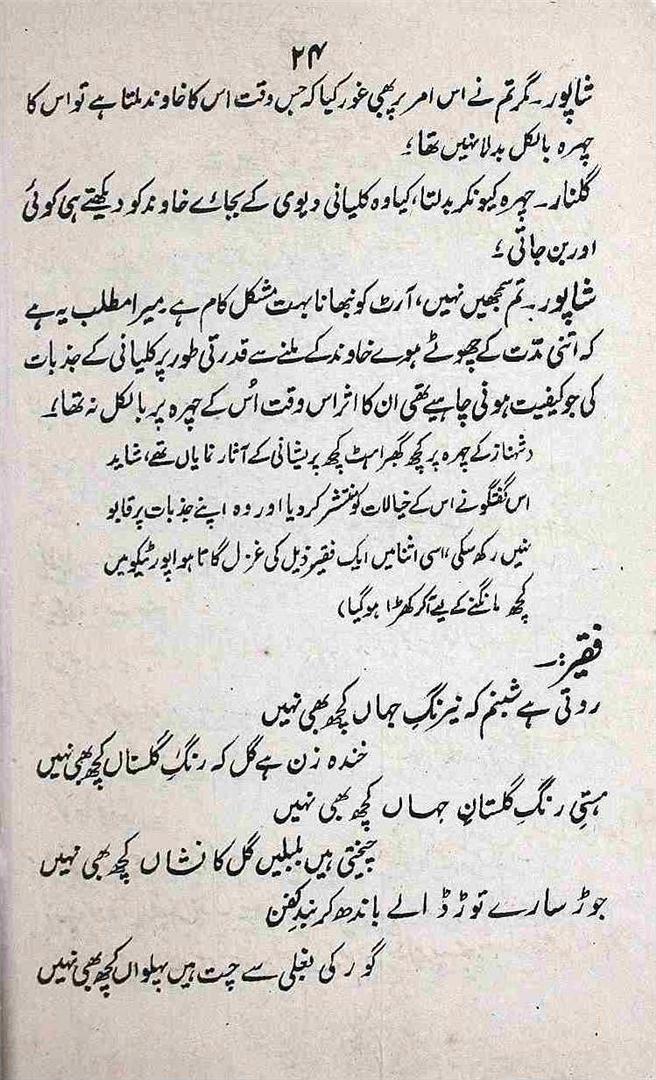 ۲۴
شاپور۔ مگر تم نے اس امر پر بھی غور کیا کہ جس وقت اس کا خاوند ملتا ہے تو اس کا
چہرہ بالکل بدلا نہیں تھا ؟
گلنار۔ چہرہ کیونکر بدلتا، کیا وہ کلیانی دیوی کے بجائے خاوند کو دیکھتے ہی کوئی
اور بن جاتی ؟
شاپور۔ تم سمجھیں نہیں، آرٹ کو نبھانا بہت مشکل کام ہے۔ میرا مطلب یہ ہے
کہ اتنی مدّت کے چھوٹے ہوے خاوند کے ملنے سے قدرتی طور پر کلیانی کے جذبات
کی جو کیفیت ہونی چاہیے تھی ان کا اثر اس وقت اُس کے چہرہ پر بالکل نہ تھا۔
(شہناز کے چہرہ پر کچھ گھبراہٹ کچھ پریشانی کے آثار نمایاں تھے، شاید
اس گفتگو نے اس کے خیالات کو منتشر کر دیا اور وہ اپنے جذبات پر قابو
نہیں رکھ سکی، اسی اثنا میں ایک فقیر ذیل کی غزل گاتا ہوا پورٹیکو میں
کچھ مانگنے کے لیے آ کر کھڑا ہو گیا)
فقیر:۔
روتی ہے شبنم کہ نیرنگِ جہاں کچھ بھی نہیں
خندہ زن ہے گل کہ رنگِ گلستاں کچھ بھی نہیں
ہستیِ رنگِ گلستانِ جہاں کچھ بھی نہیں
چیختی ہیں بلبلیں گل کا نشاں کچھ بھی نہیں
جوڑ سارے توڑ ڈالے باندھ کر بندِ کفن
گور کی بغلی سے چت ہیں پہلواں کچھ بھی نہیں